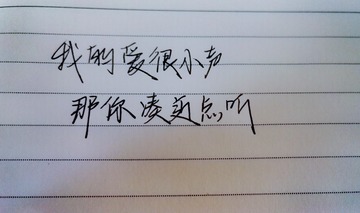 我的爱很小声
那你凑近点听